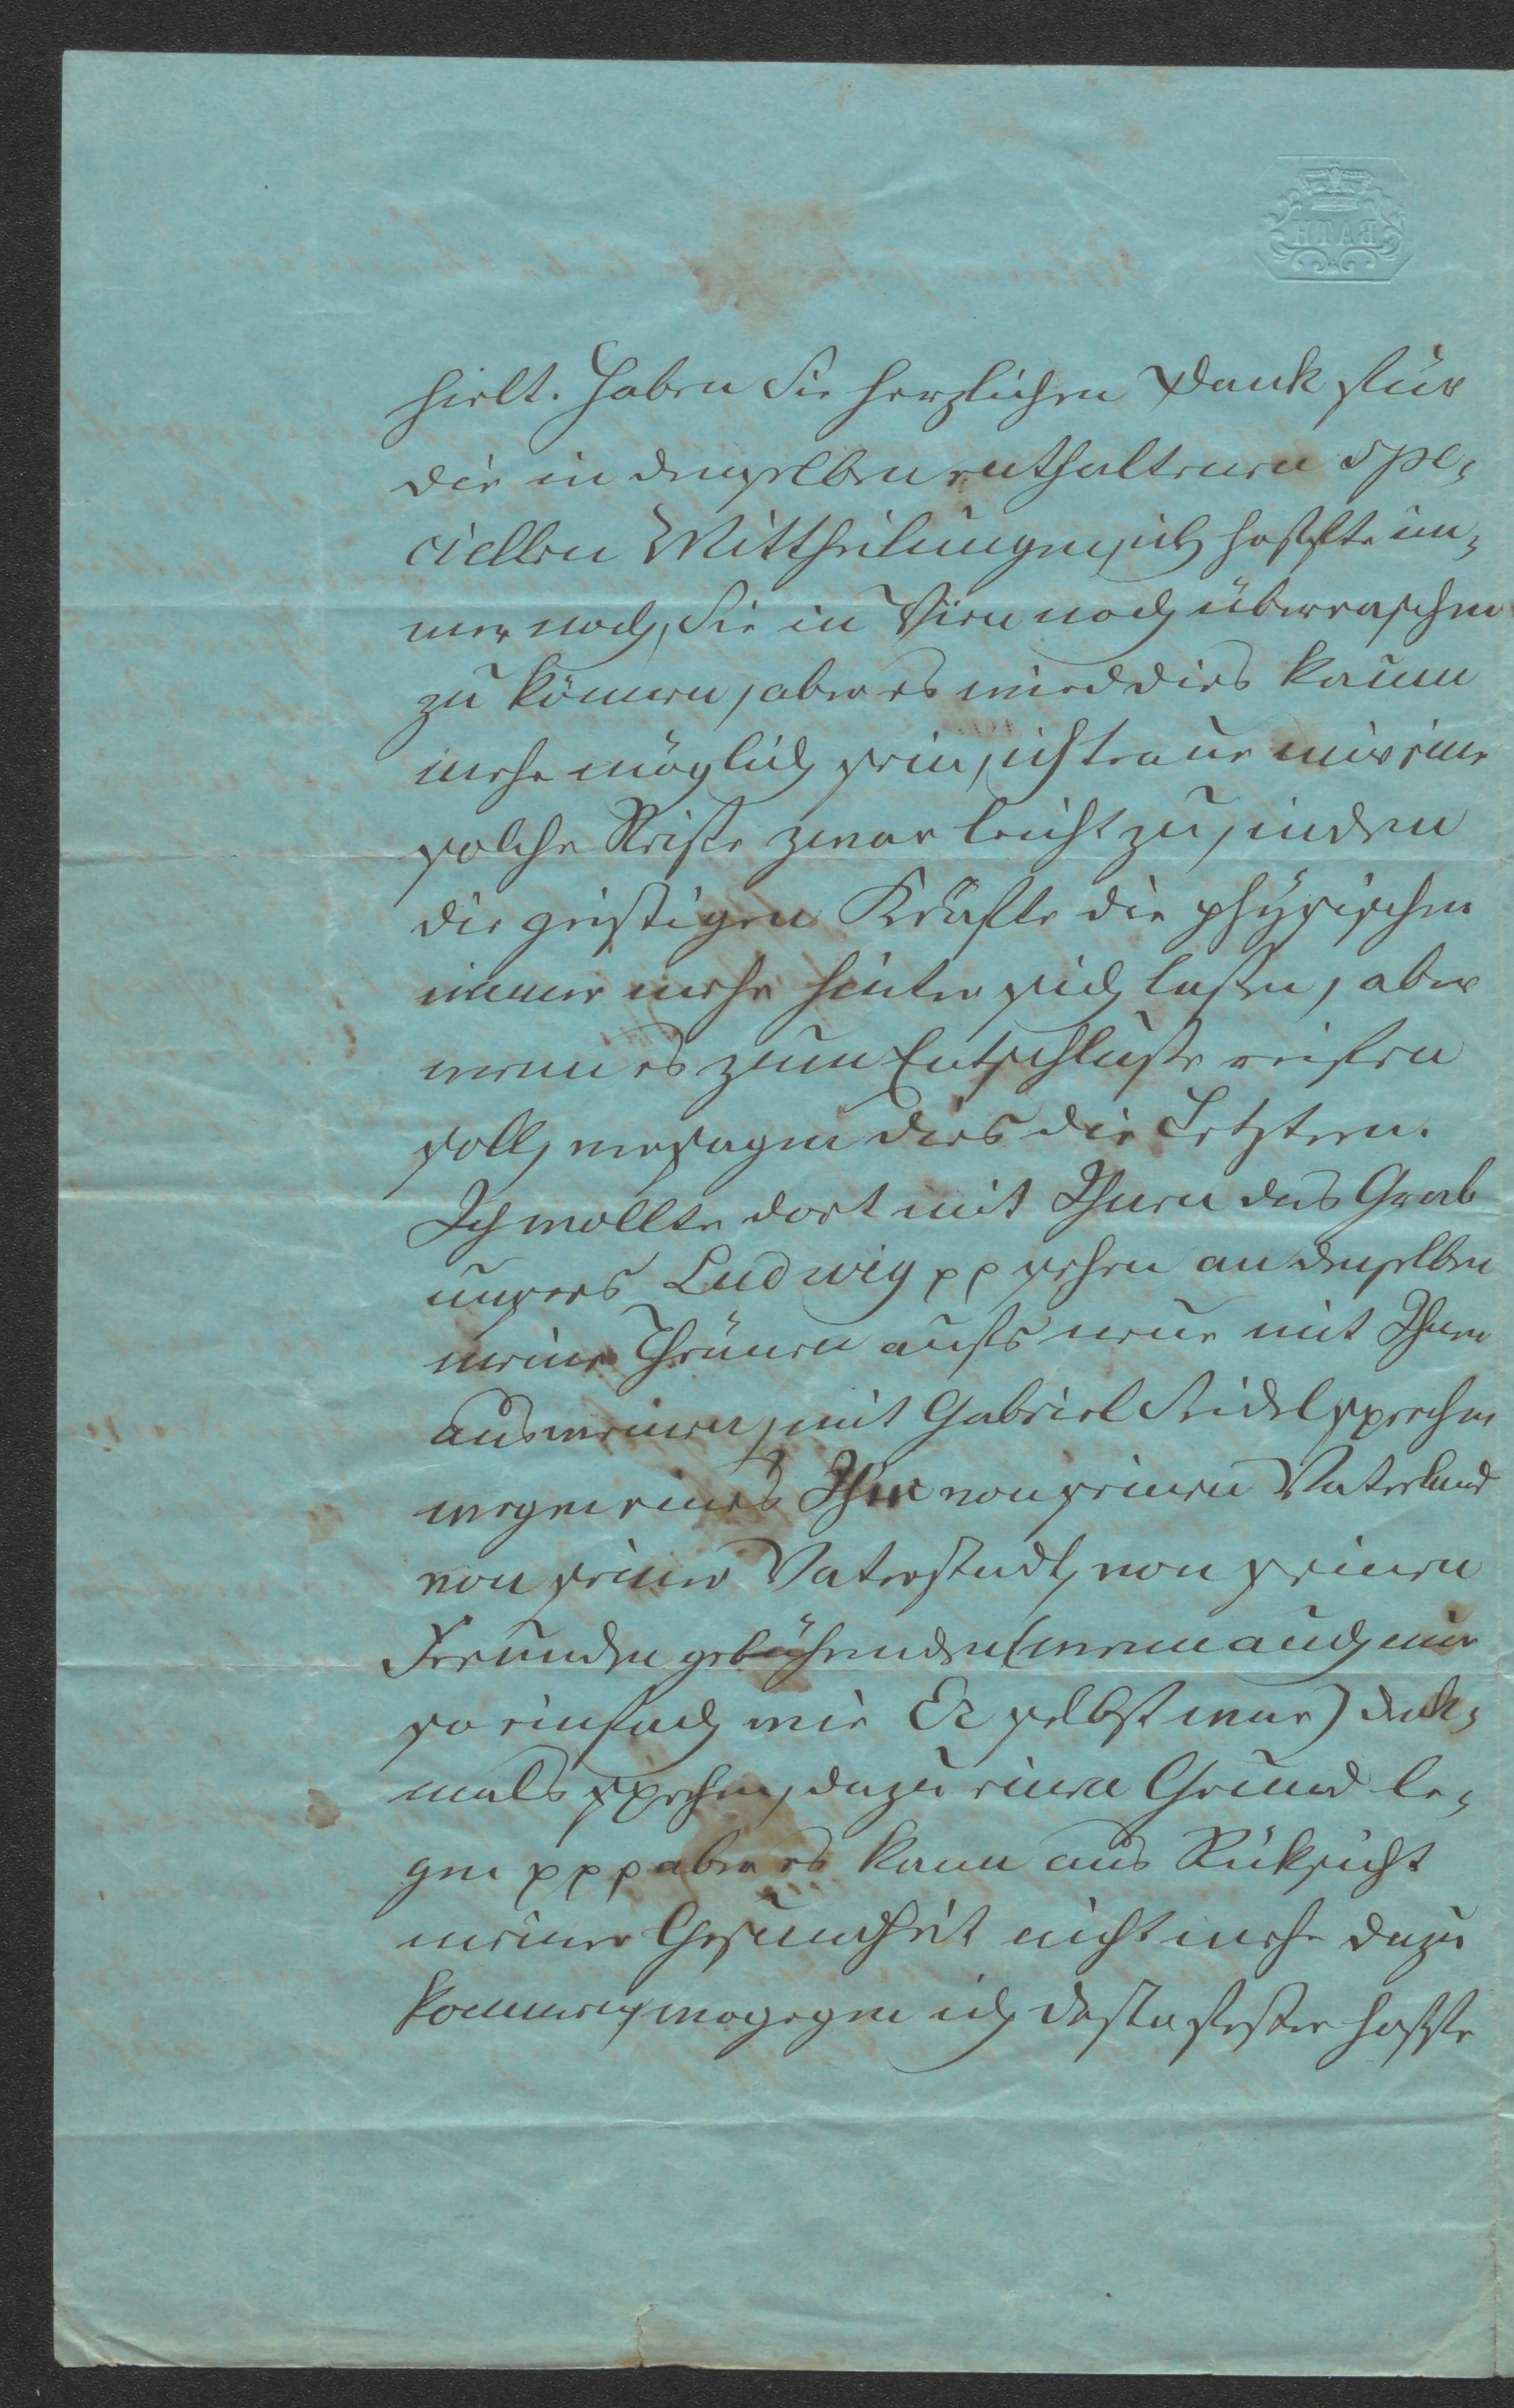 BATH
hielt. Haben Sie herzlichen Dank für
die in denselben enthaltenen spe-
ciellen Mittheilungen, ich hoffte im-
mer noch, Sie in Wien noch überraschen
zu können, aber es wird dies kaum
mehr möglich sein, ich traue mir eine
solche Reise zwar leicht zu, indem
die geistigen Kräfte die physischen
immer mehr hinter sich lassen, aber
wenn es zum Entschlusse reifen
soll, versagen dies die Letztern.
Ich wollte dort mit Ihnen das Grab
unsers Ludwig pp sehen an demselben
meine Thränen aufs neue mit Ihnen
ausweinen, mit Gabriel Seidel sprechen
wegen eines Ihm von seinem Vaterland
von seiner Vaterstadt, von seinen
Freunden gebührenden (wenn auch nur
so einfach wie Er selbst war) Denk-
mals sprechen, dazu einen Grund le-
gen ppp aber es kann aus Rüksicht
meiner Gesundheit nicht mehr dazu
kommen, wogegen ich desto fester hoffe